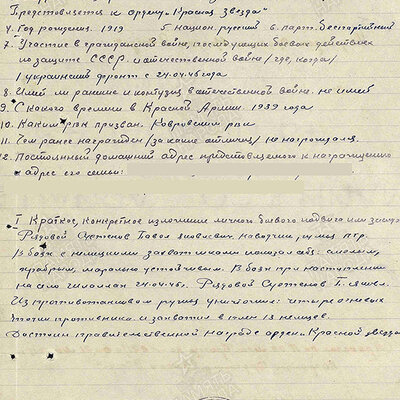 Представляется к ордену "Красная Звезда"
4. Год рождения. 1919 5 национ. русский 6. парт. беспартийный
7. Участие в гражданской войне, последующих боевых действиях
по защите СССР и отечественной войне /где, когда/
1 украинский фронт с 24.04.45 года
8. Имел ли ранение и контузии в отечественной войне. не имеет
9. С какого времени в Красной Армии. 1939 года
10. Каким рвк призван. Ковровским рвк
11. Чем ранее награжден /за какие отличия/ не награждался.
12. Постоянный домашний адрес представляемого к награждению
и адрес его семьи:
I Краткое, конкретное изложение личного боевого подвига или заслуг
Рядовой Павел Яковлевич. наводчик, птр.
В боях с немецкими захватчиками показал себя: смелым,
храбрым, морально устойчивым. В боях при наступлении
на село 24.04.45г. Рядовой
Из противотанкового ружья уничтожил: четыре огневых
точки противника и захватил в плен 13 немцев.
Достоин правительственной награде орден "Красной звезда"